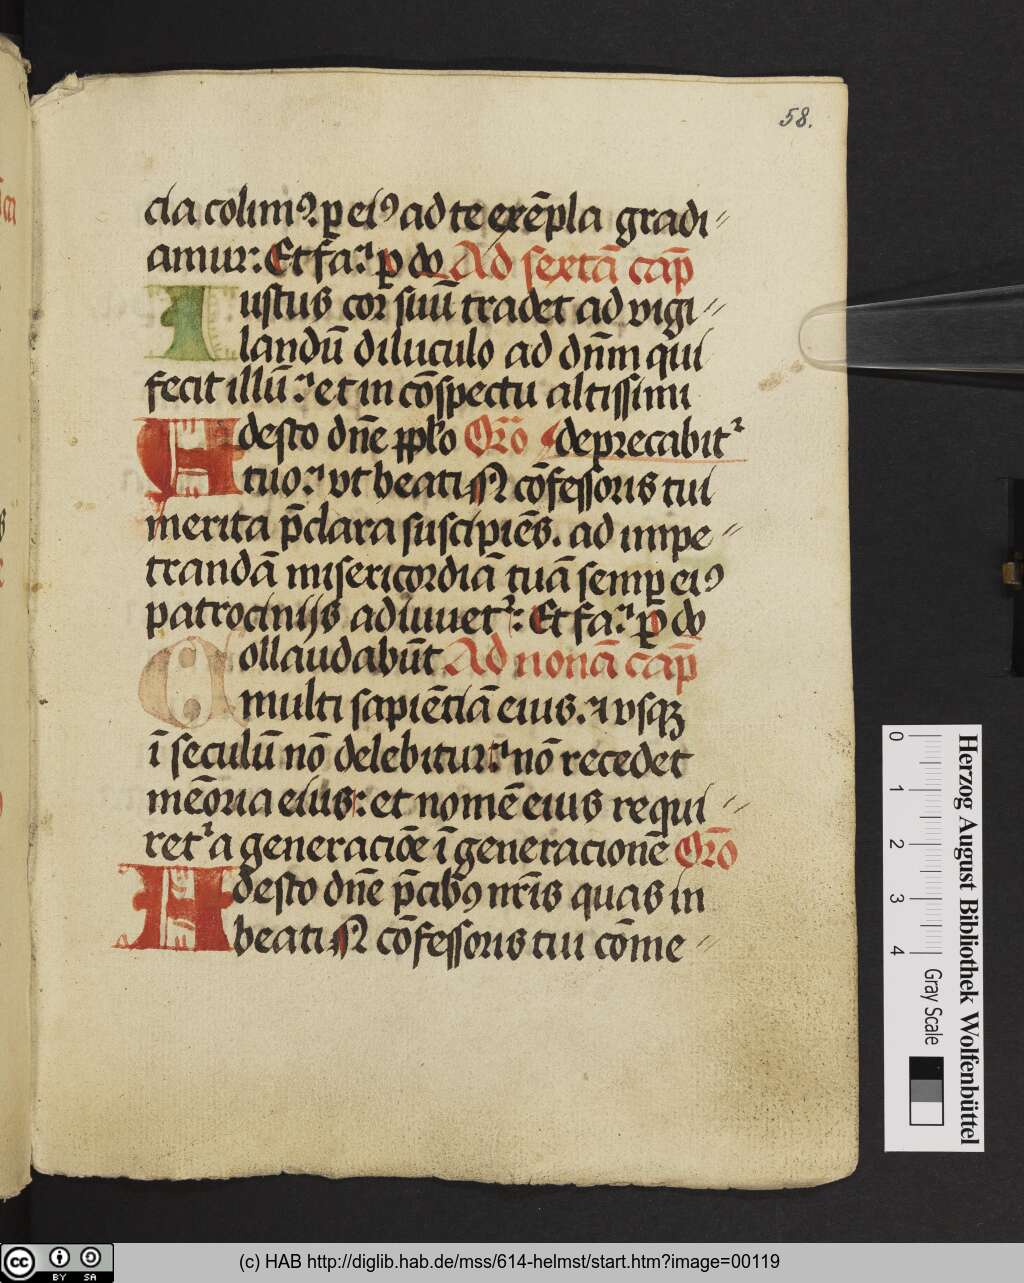 58.
cia colimꝰ. ꝑ eiꝰ ad te exēpla gradi〃
amur: Et fa. ꝑ do Ad sextā cap̄
Iustus cor suū tradet ad vigi〃
landū diluculo ad dn̄m qui
fecit illū. et in cōspectu altissimi
Adesto dn̄e pplo Oro deprecabit᷑
tuo. vt beati N cōfessoris tui
merita p̄clara suscipiēs. ad impe〃
trandā misericordiā tuā semꝑ eiꝰ
patrocinijs adiuuet᷑: Et fa. ꝑ do
Collaudabūt Ad nonā cap̄
multi sapiētiā eius. ⁊ vsqꝫ
ī seculū nō delebitur. nō recedet
mēoria eius: et nomē eius requi〃
ret᷑ a generaciōe ī generacionē Oro
Adesto dn̄e p̄cibꝰ nr̄is quas in
beati N cōfessoris tui cōme〃
0 1 2 3 4
Gray Scale
Herzog August Bibliothek Wolfenbüttel
cc BY SA
(c) HAB http://diglib.hab.de/mss/614-helmst/start.htm?image=00119